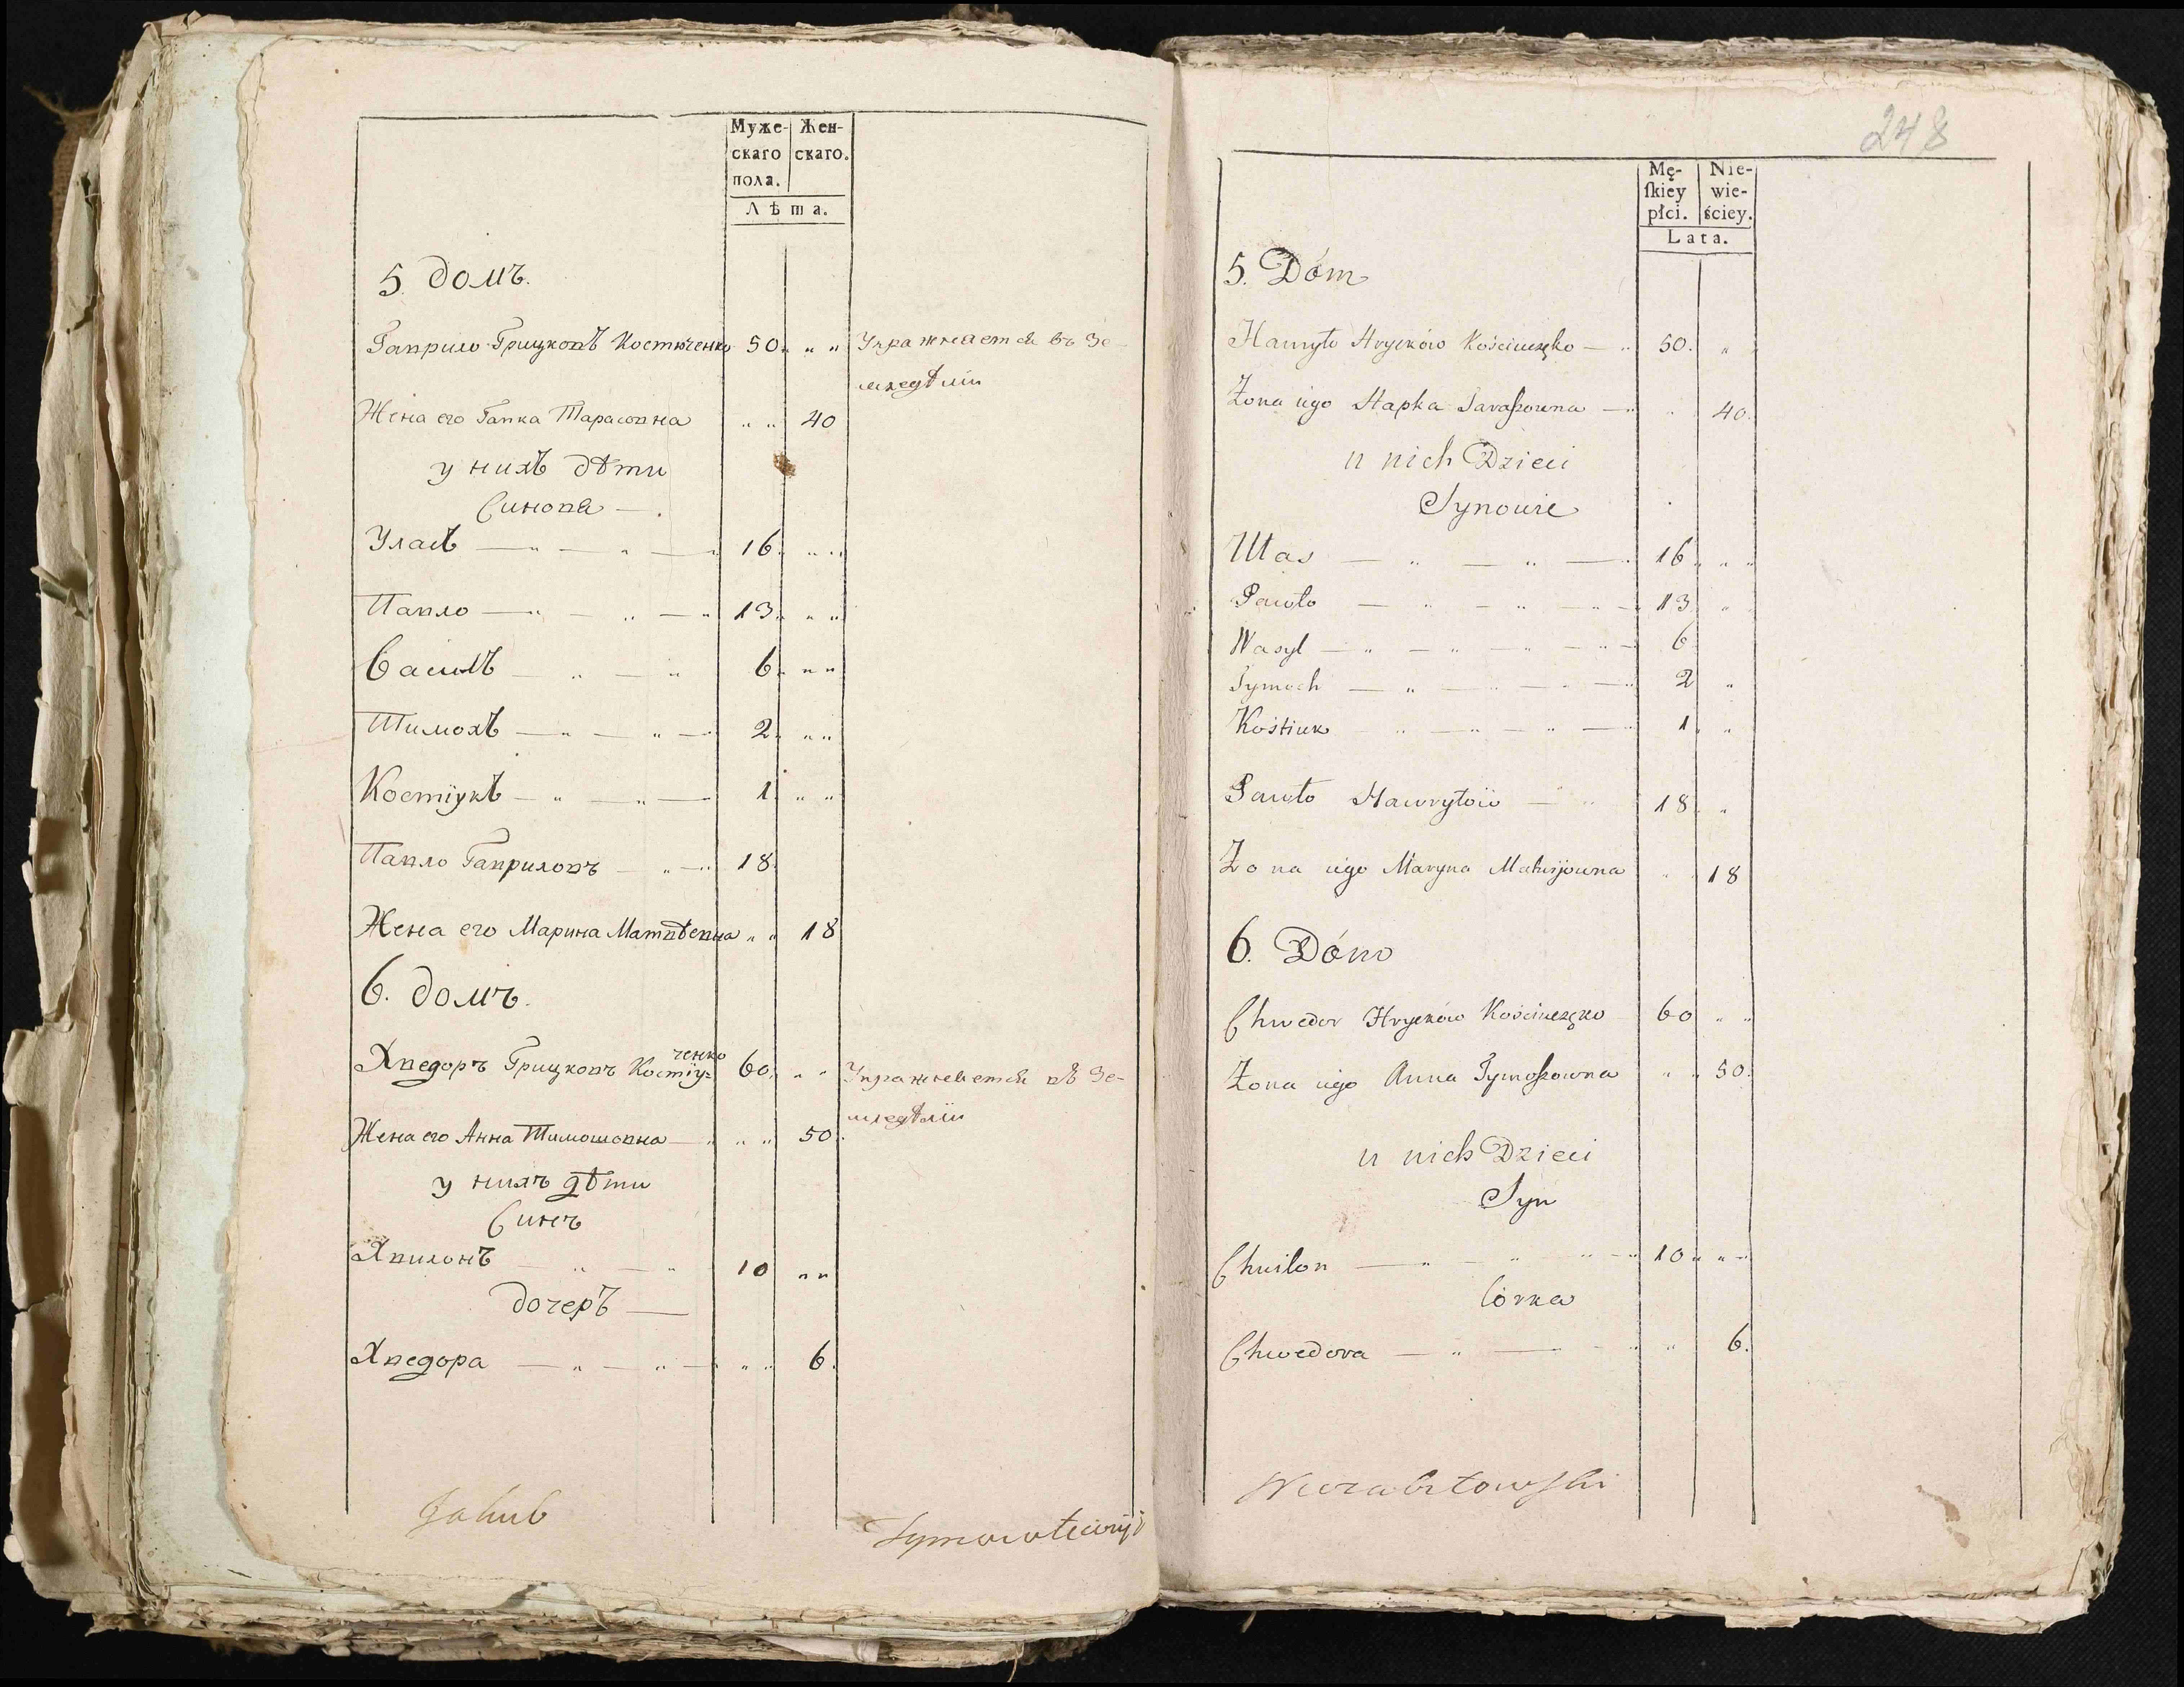 Муже- Жен-
скаго скаго.
пола.
Лѣта.
5. домъ.
Гаврило Грицковъ Костюченко 50. „ „ Упражняется въ Зе-
мледѣлiи
Жена его Гапка Тарасовна „ „ 40
у нихъ дѣти
Синовя — .
Уласъ — „ — „ — 16. „ „
Павло — „ — „ — „ 13. „ „
Василь — „ — „ 6. „ „
Тимохъ — „ — „ — 2. „ „
Костiукъ — „ — „ — 1. „ „
Павло Гавриловъ — „ — 18.
Жена его Марина Матвѣевна „ „ 18
6. домъ.
ченко
Хведоръ Грицковъ Костiу= 60. „ „ Упражняется въ Зе-
мледѣлiи
Жена его Анна Тимошовна — „ „ „ 50.
у нихъ дѣти
Синъ
Хвилонъ — „ — „ 10 „ „
дочеръ —
Хведора — „ — „ — „ „ 6.
Jakub
248
Mę- Nie-
ſkiey wie-
płci. ściey.
Lata.
5. Dóm
Hawryło Hryćków Kościuczęko — „ 50. „
Żona iego Hapka Taraſzowna — „ „ 40.
u nich Dzieci
Synowie
Ułas — „ — „ — „ 16. „ „
Pawło — „ — „ — „ — 13. „
Wasyl — „ — „ — „ — „ — 6
Tymoch — „ — „ — „ — „ 2 „
Kostiuk — „ — „ — „ — 1. „
Pawło Hawryłów — „ „ 18. „
Żona iego Maryna Matwijowna „ 18
6. Dóm
Chwedor Hryćków Kościuczęko 60 „ „
Żona iego Anna Tymoſzowna „ „ 50.
u nich Dzieci
Syn
Chwilon — „ — „ „ — „ 10 „ „ „
Córka
Chwedora — „ — „ „ 6.